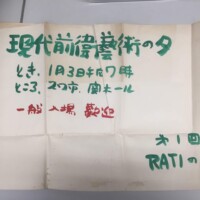 現代前衛藝術の夕
とき、1月3日午后7時
ところ、スワ市、南ホール
一般入場歓迎
オ1回
RATIの